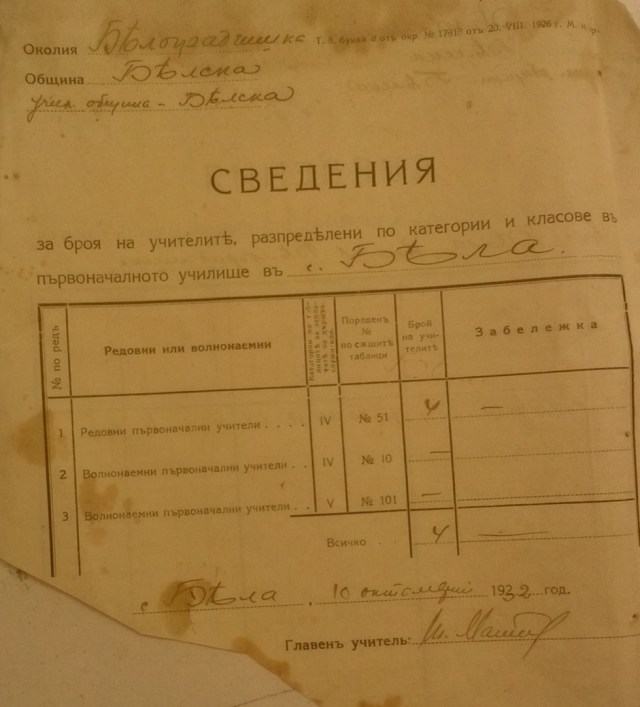 Околия Бѣлоградчишка Т. п. буква а отъ окр. № 1781 отъ 20. VIII. 1926 г. М. н. пр.
Община Бѣлска
учил. община - Бѣлска
СВЕДЕНИЯ
за броя на учителитѣ, разпредѣлени по категории и класове въ
първоначалното училище въ с. Бѣла.
№ по редъ Редовни или волнонаемни Пореденъ № по сѫщитѣ таблици Брой на учителитѣ Забележка
1 Редовни първоначални учители . . . . IV № 51 4 —
2 Волнонаемни първоначални учители . . IV № 10 —
3 Волнонаемни първоначални учители . . V № 101 —
Всичко . 4 —
с Бѣла, 10 октомврий 1932 год.
Главенъ учитель: